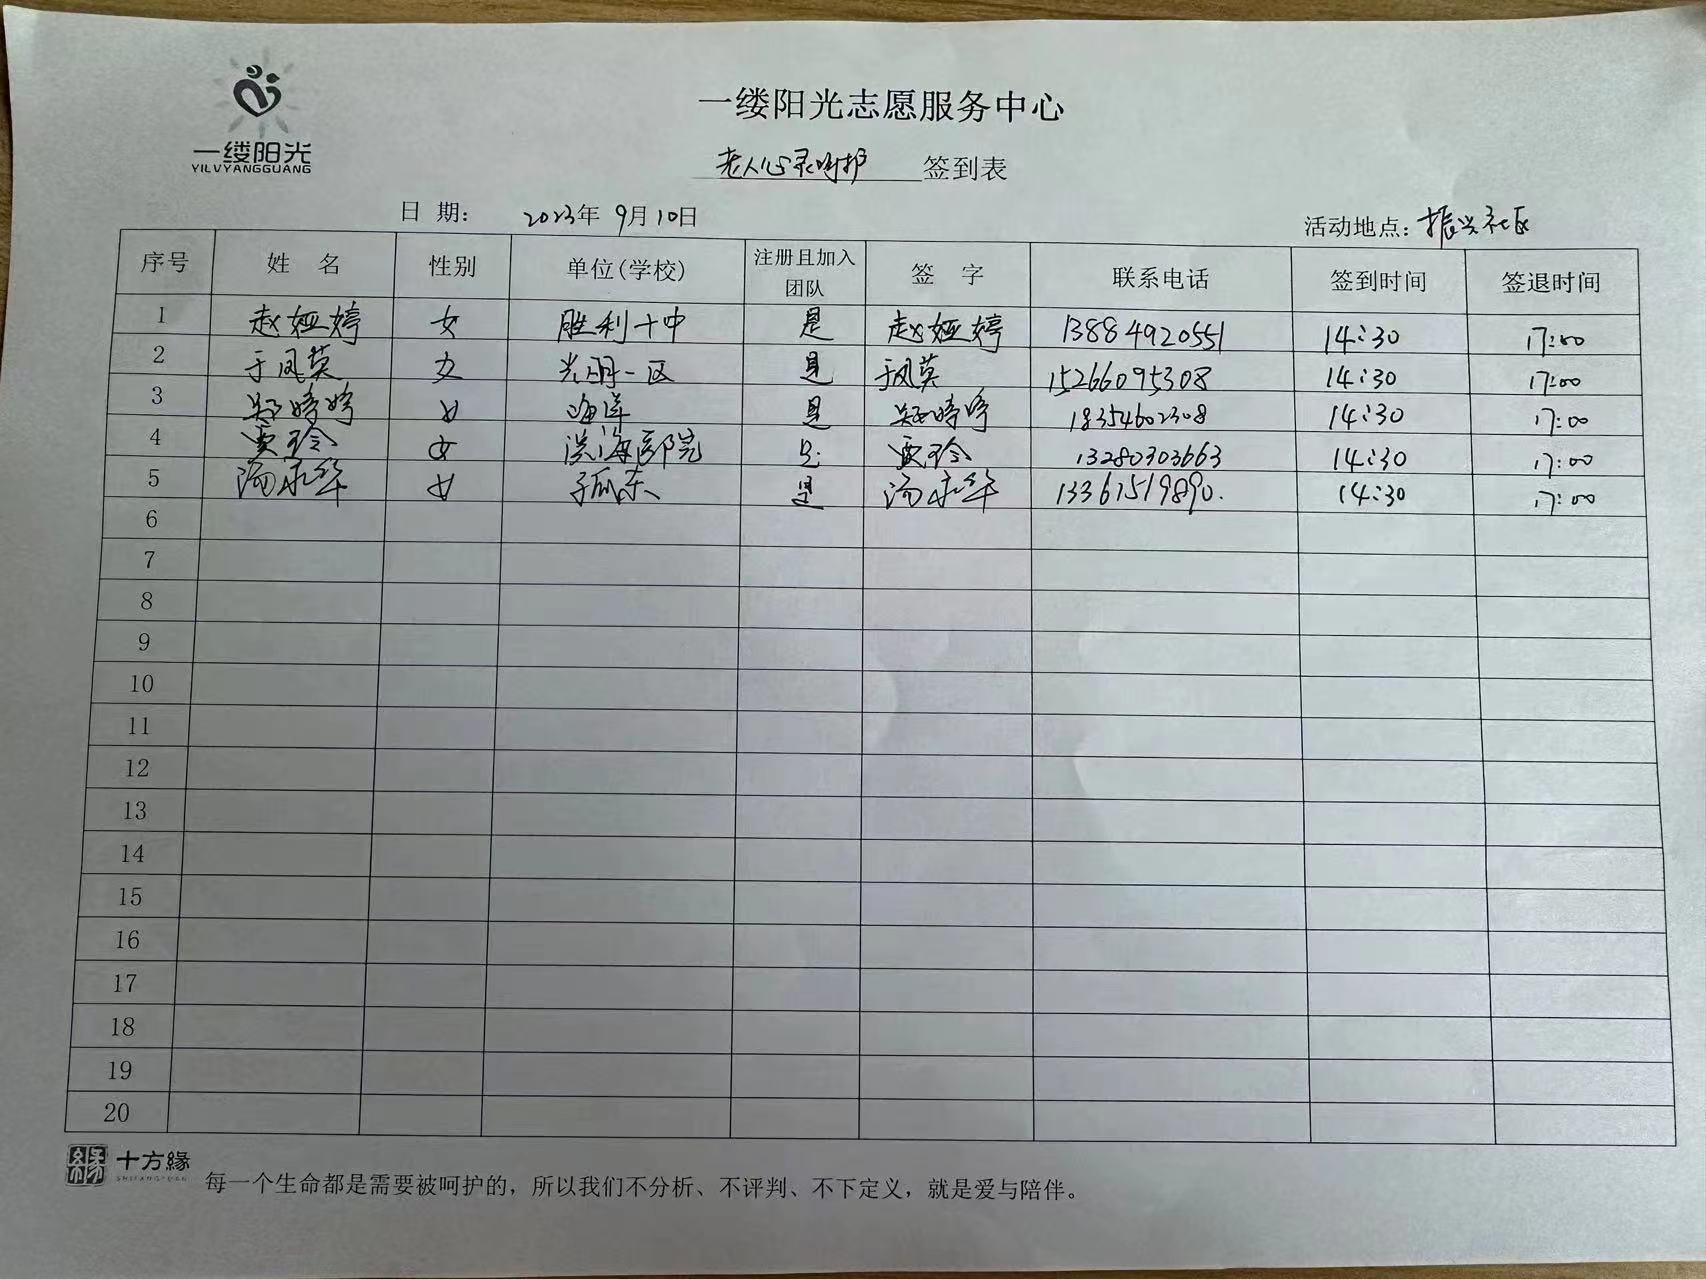 一缕阳光
YILVYANGGUANG
一缕阳光志愿服务中心
老人心灵呵护 签到表
日 期： 2023年 9月10日 活动地点：振兴社区
序号 姓 名 性别 单位(学校) 注册且加入团队 签 字 联系电话 签到时间 签退时间
1 赵娅婷 女 胜利十中 是 赵娅婷 13884920551 14:30 17:00
2 于凤英 女 光明一区 是 于凤英 15266095308 14:30 17:00
3 郑婷婷 女 海洋 是 郑婷婷 18354602308 14:30 17:00
4 贾玲 女 滨海医院 是 贾玲 13280303663 14:30 17:00
5 汤永华 女 孤东 是 汤永华 13361519890. 14:30 17:00
6
7
8
9
10
11
12
13
14
15
16
17
18
19
20
缘 十方緣
SHIFANGYUAN
每一个生命都是需要被呵护的，所以我们不分析、不评判、不下定义，就是爱与陪伴。